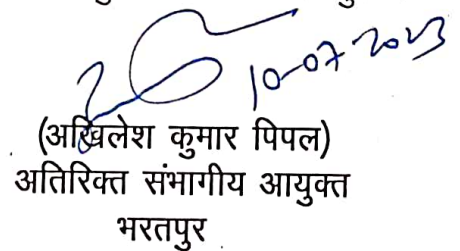 10-07-2023
(अखिलेश कुमार पिपल)
अतिरिक्त संभागीय आयुक्त
भरतपुर